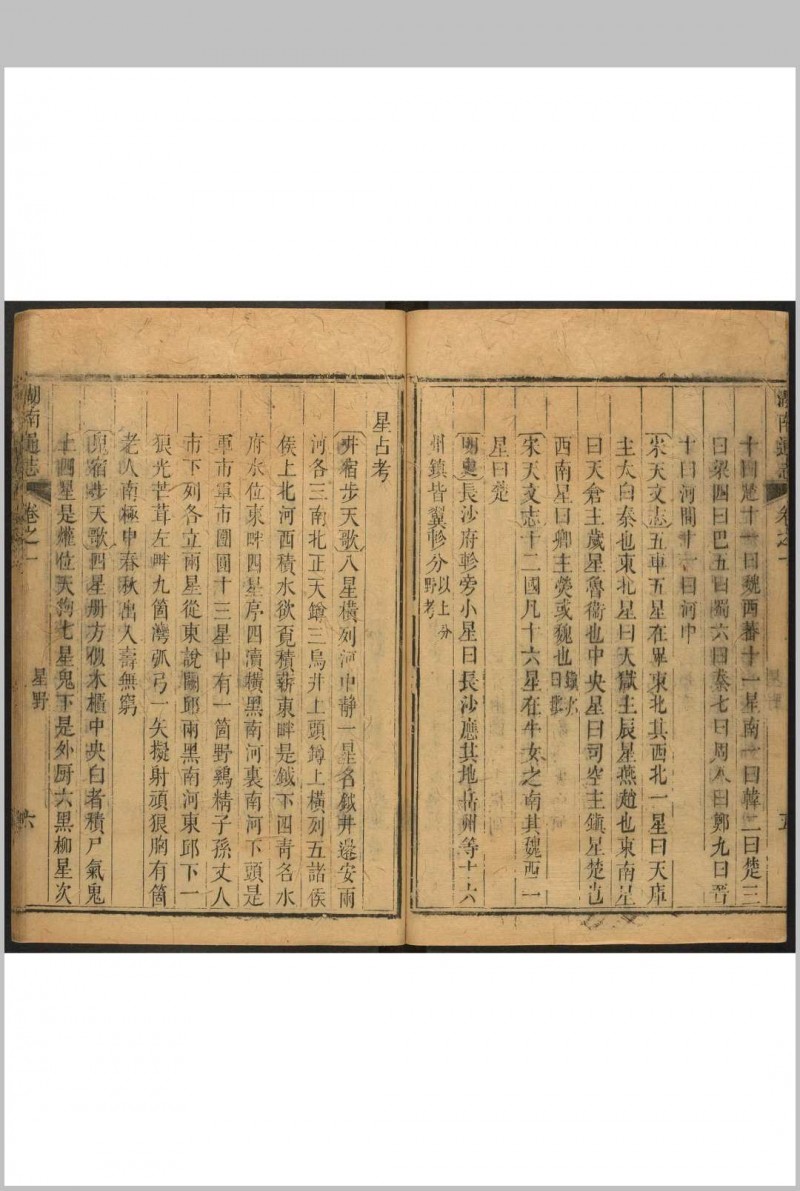 湖南通志
卷之一
五
十曰楚十一曰魏西蕃十一星南一曰韓二曰楚三
曰梁四曰巴五曰蜀六曰秦七曰周八曰鄭九曰晉
十曰河間十一曰河中
宋天文志五車五星在畢東北其西北一星曰天庫
主太白秦也東北星曰天獄主辰星燕趙也東南星
曰天倉主歲星魯衞也中央星曰司空主鎭星楚也
西南星曰卿主熒或魏也
宋天文志十二國凡十六星在牛女之南其魏西一
星曰楚
明史長沙府軫旁小星曰長沙應其地岳州等十六
州鎮皆翼軫分以上分野考
星占考
井宿步天歌八星橫列河中靜一星名鉞井邊安兩
河各三南北正天罇三烏井上頭罇上橫列五諸侯
侯上北河西積水欲覓積薪東畔是鉞下四靑名水
府水位東畔四星序四瀆橫黑南河裏南河下頭是
軍市軍市團圓十三星中有一箇野鷄精子孫丈人
市下列各立兩星從東說闕邱兩黑南河東邱下一
狼光芒茸左畔九箇灣弧弓一矢擬射頑狼胸有箇
老人南極中春秋出入壽無窮
鬼宿步天歌四星册方似木櫃中央白者積尸氣鬼
上四星是爟位天狗七星鬼下是外厨六黑柳星次
湖南通志
卷之一
星野
六